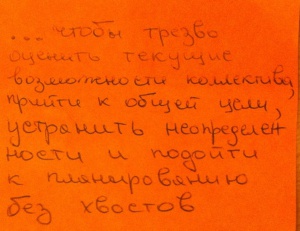 ...чтобы трезво
оценить текущие
возможности коллектива,
прийти к общей цели,
устранить неопределен
ности и подойти
к планированию
без хвостов